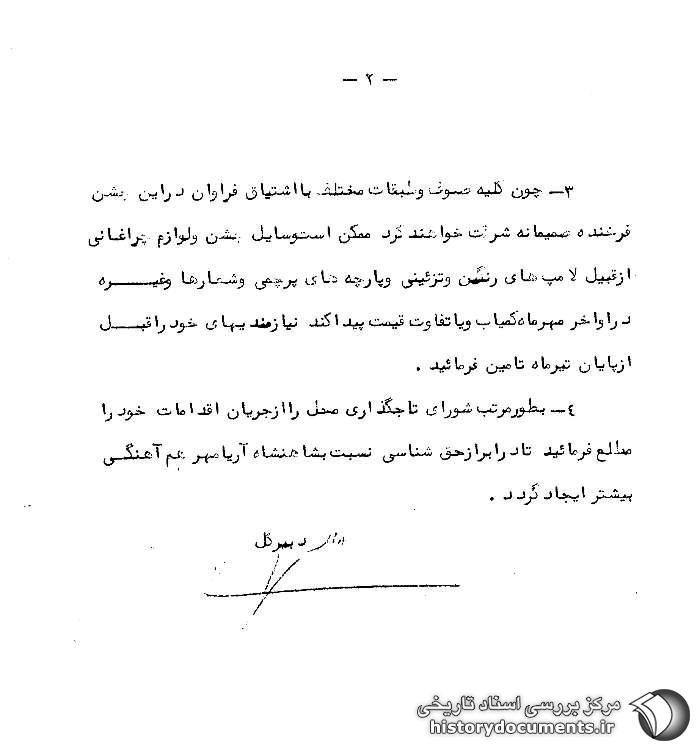 — ۲ —
۳ــ چون کلیه صنوف وطبقات مختلف بااشتیاق فراوان دراین جشن
فرخنده صمیمانه شرکت خواهند کرد ممکن است وسایل جشن ولوازم چراغانی
ازقبیل لامپ های رنگین وتزئینی وپارچه های پرچمی وشعارها وغیـــره
دراواخر مهرماه کمیاب ویاتفاوت قیمت پیداکند نیازمندیهای خودراقبــل
ازپایان تیرماه تامین فرمائید .
٤ــ بطورمرتب شورای تاجگذاری محل راازجریان اقدامات خودرا
مطلع فرمائید تادرابرازحق شناسی نسبت بشاهنشاه آریامهر هم آهنگــی
بیشتر ایجاد گردد .
دبیرکل
مرکز بررسی اسناد تاریخی
historydocuments.ir